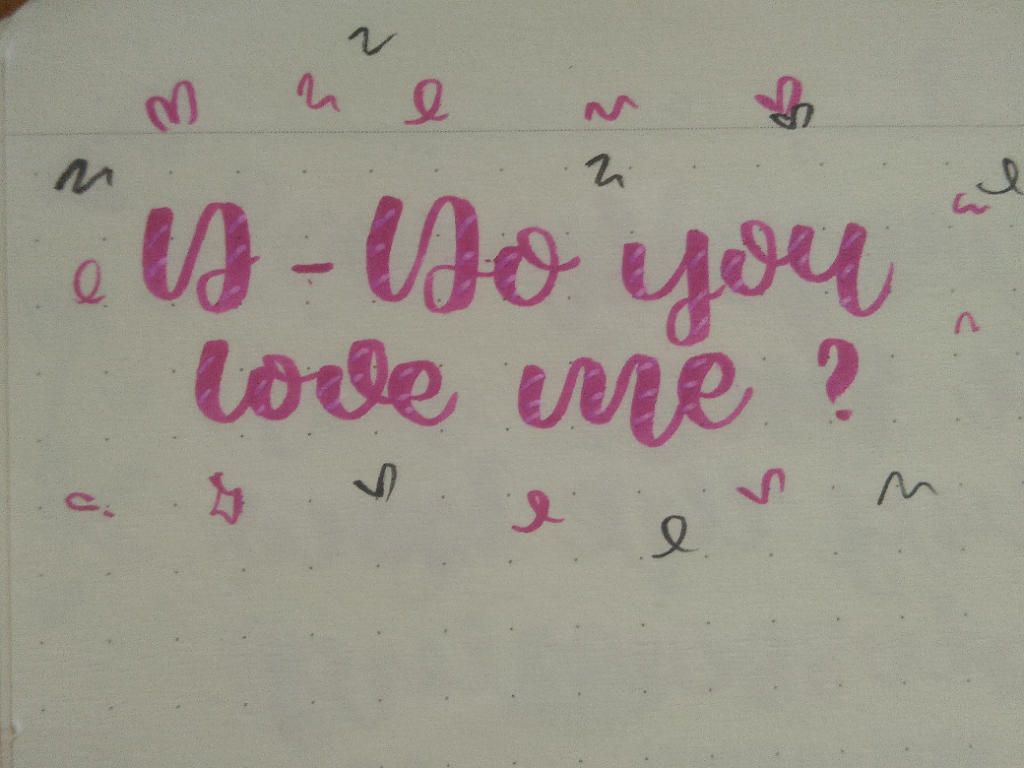 D - Do you
love me ?